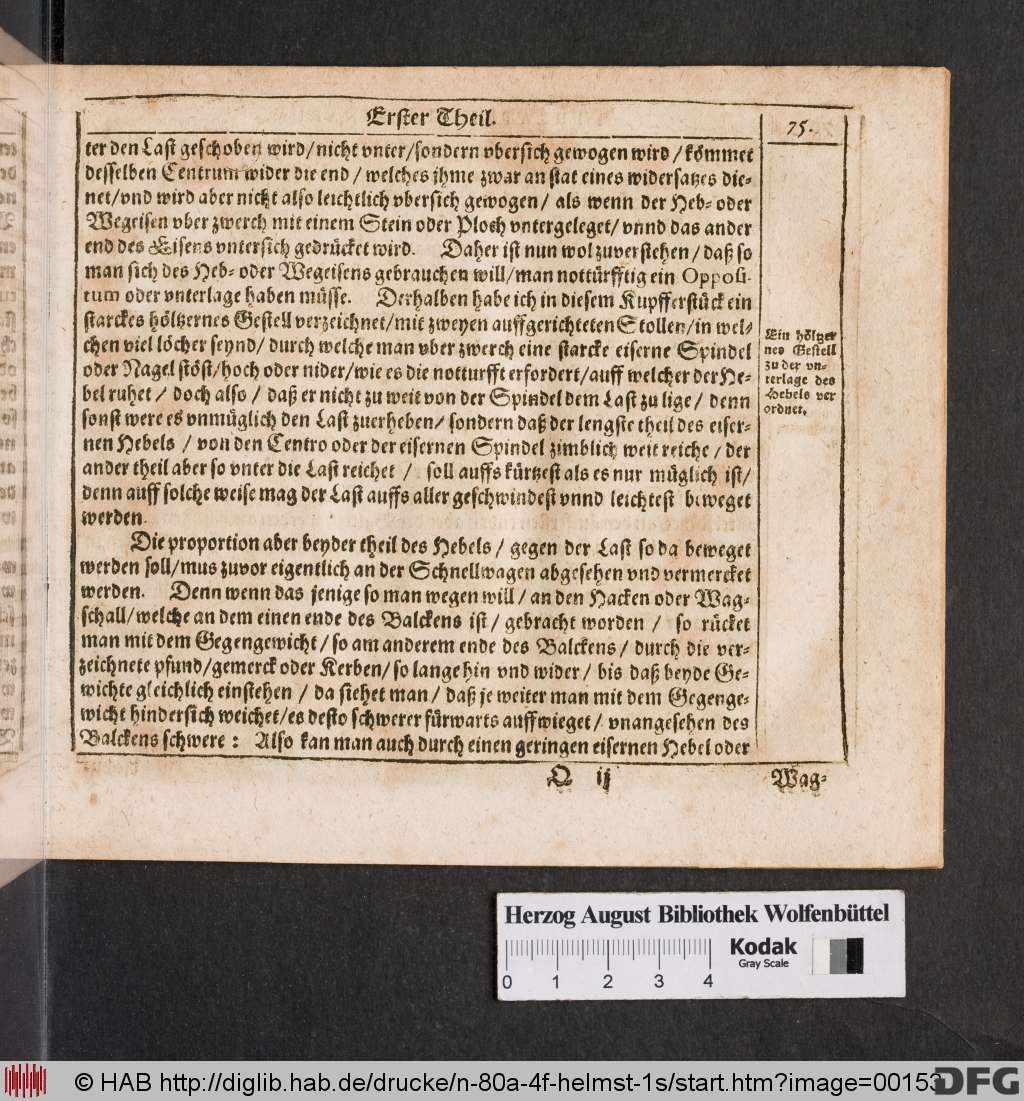 Erster Theil.
75.
ter den Last geschoben wird/nicht vnter/sondern vbersich gewogen wird/kömmet
desselben Centrum wider die end/welches jhme zwar an stat eines widersatzes die-
net/vnd wird aber nicht also leichtlich vbersich gewogen/als wenn der Heb- oder
Wegeisen vber zwerch mit einem Stein oder Ploch vntergeleget/vnnd das ander
end des Eisens vntersich gedrücket wird. Daher ist nun wol zuverstehen/daß so
man sich des Heb- oder Wegeisens gebrauchen will/man nottürfftig ein Opposi-
tum oder vnterlage haben müsse. Derhalben habe ich in diesem Kupfferstück ein
starckes höltzernes Gestell verzeichnet/mit zweyen auffgerichteten Stollen/in wel-
chen viel löcher seynd/durch welche man vber zwerch eine starcke eiserne Spindel
oder Nagel stöst/hoch oder nider/wie es die notturfft erfordert/auff welcher der He-
bel ruhet/doch also/daß er nicht zu weit von der Spindel dem Last zu lige/denn
sonst were es vnmüglich den Last zuerheben/sondern daß der lengste theil des eiser-
nen Hebels/von den Centro oder der eisernen Spindel zimblich weit reiche/der
ander theil aber so vnter die Last reichet/soll auffs kürtzest als es nur müglich ist/
denn auff solche weise mag der Last auffs aller geschwindest vnnd leichtest beweget
werden.
Ein höltzer
nes Gestell
zu der vn-
terlage des
Hebels ver
ordnet.
Die proportion aber beyder theil des Hebels/gegen der Last so da beweget
werden soll/mus zuvor eigentlich an der Schnellwagen abgesehen vnd vermercket
werden. Denn wenn das jenige so man wegen will/an den Hacken oder Wag-
schall/welche an dem einen ende des Balckens ist/gebracht worden/so rücket
man mit dem Gegengewicht/so am anderem ende des Balckens/durch die ver-
zeichnete pfund/gemerck oder Kerben/so lange hin vnd wider/bis daß beyde Ge-
wichte gleichlich einstehen/da siehet man/daß je weiter man mit dem Gegenge-
wicht hindersich weichet/es desto schwerer fürwarts auffwieget/vnangesehen des
Balckens schwere: Also kan man auch durch einen geringen eisernen Hebel oder
Q ij
Wag-
Herzog August Bibliothek Wolfenbüttel
0 1 2 3 4
Kodak
Gray Scale
© HAB http://diglib.hab.de/drucke/n-80a-4f-helmst-1s/start.htm?image=00153
DFG